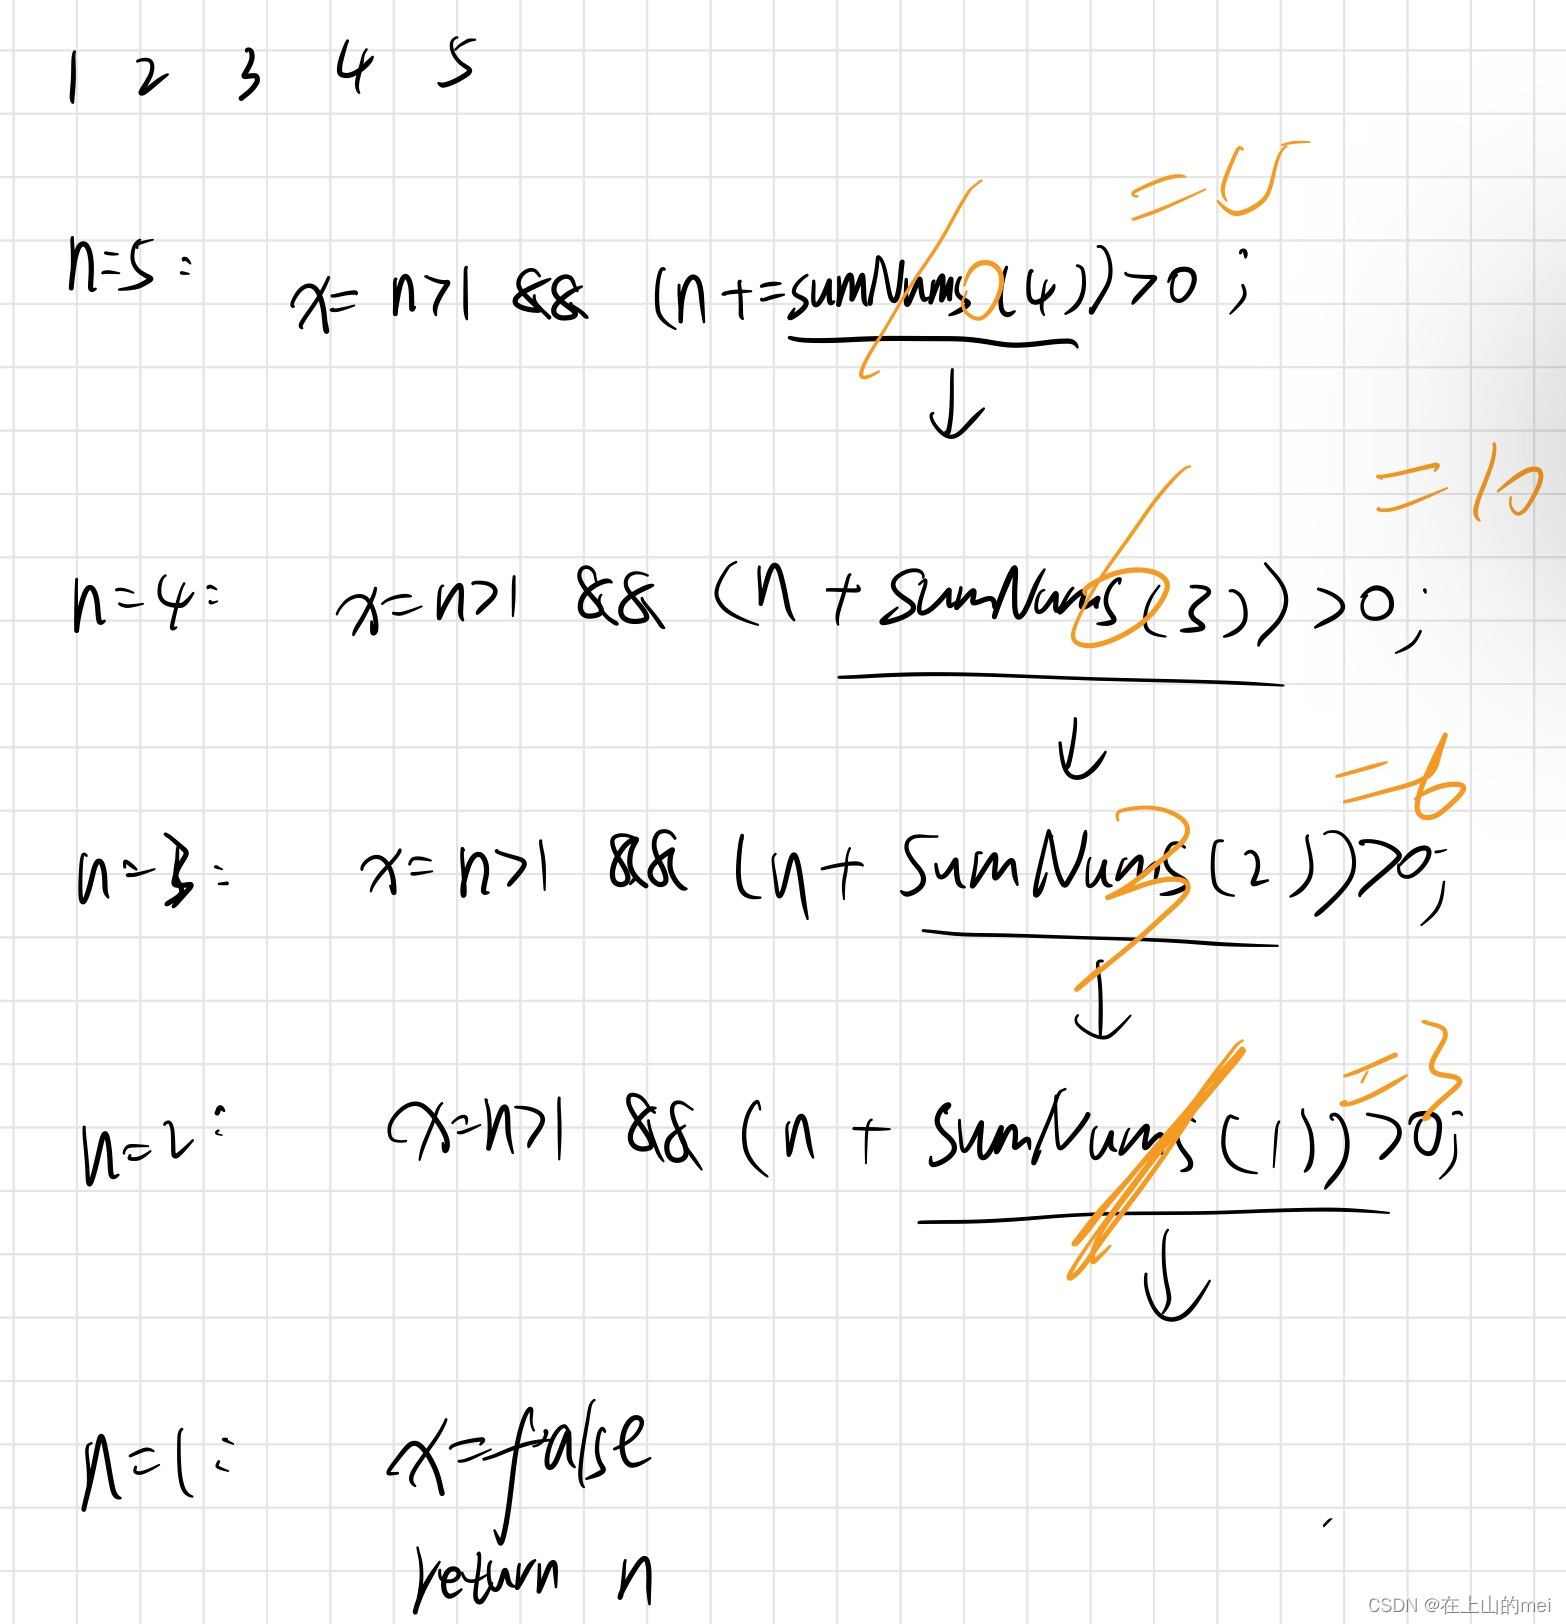 1 2 3 4 5
=15
n=5: x= n>1 && (n+=sumNums(4))>0;
10
=10
n=4: x=n>1 && (n+sumNums(3))>0;
6
=6
n=3: x=n>1 && (n+sumNums(2))>0;
3
=3
n=2: x=n>1 && (n+sumNums(1))>0;
1
n=1: x=false
return n
CSDN @在上山的mei